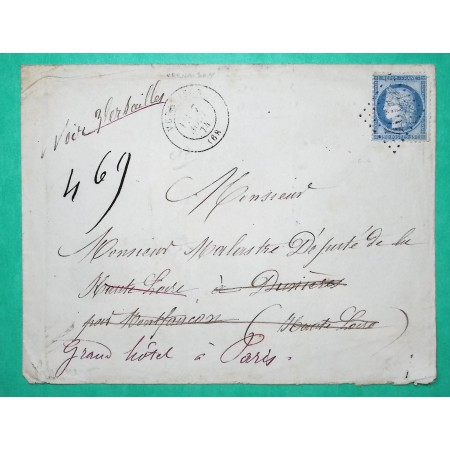 Voir Versailles
(68)
469
Monsieur
Monsieur Malartre Député de la
Haute Loire à Dunières
par Montfaucon (Haute Loire)
Grand hôtel à Paris.